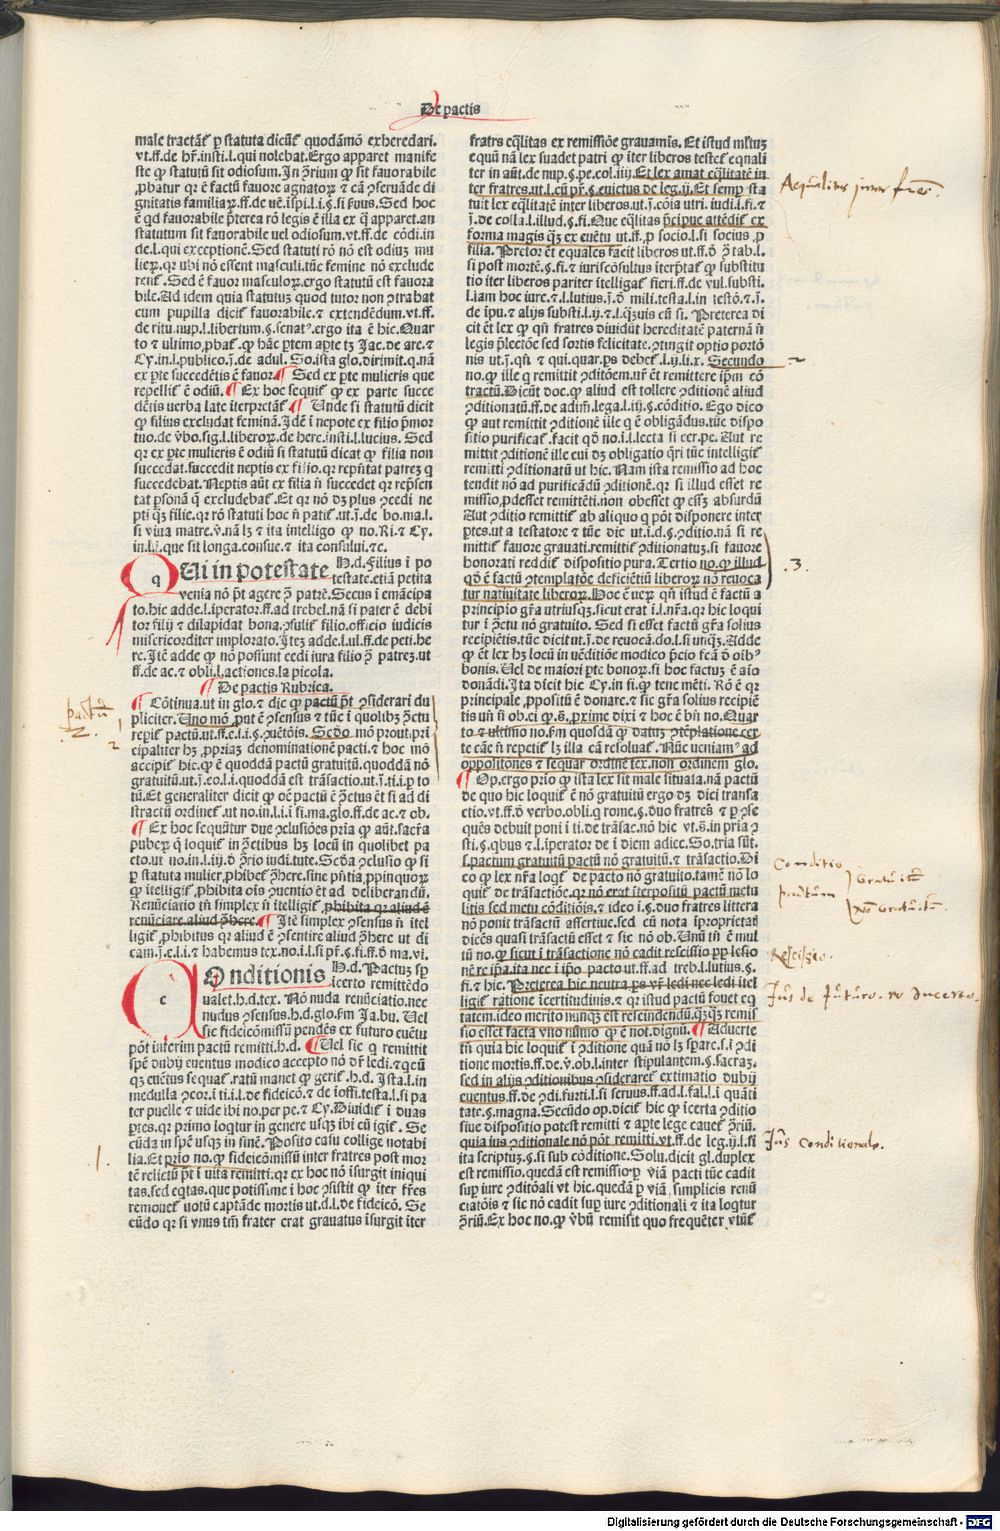 De pactis
male tractat͛ ꝑ statuta dicūt͛ quodāmō exheredari.
vt.ff.de hr̄.insti.l.qui nolebat.Ergo apparet manife
ste ꝙ statutū sit odiosum.In ꝯrium ꝙ sit fauorabile
statutum sit fauorabile vel odiosum.vt.ff.de cōdi.in
de.l.qui exceptionē.Sed statuti rō nō est odiuꝫ mu
lieꝝ.qr ubi nō essent masculi.tūc femine nō exclude
rent͛.Sed ē fauor masculoꝝ.ergo statutū est fauora
bile.Ad idem quia statutuꝫ quod tutor non ꝯtrabat
cum pupilla dicit͛ fauorabile.⁊ extendēdum.vt.ff.
de ritu.nup.l.libertum.ꝭ.senat⁹.ergo ita ē hic.Quar
ex ꝑte succedētis ē fauor.¶ Sed ex ꝑte mulieris que
repellit͛ ē odiū.¶ Ex hoc sequit͛ ꝙ ex parte succe
dētis uerba late iterpretāt͛ ¶ Unde si statutū dicit
ꝙ filius excludat feminā.Idē i nepote ex filio p̄mor
tuo.de v̄bo.sig.l.liberoꝝ.de here.insti.l.lucius. Sed
qr ex ꝑte mulieris ē odiū si statutū dicat ꝙ filia non
succedat.succedit neptis ex filio.qr rep̄ntat patreꝫ q
succedebat.Neptis aūt ex filia n̄ succedet qr rep̄sen
tat ꝑsonā q̄ excludebat͛.Et qr nō dꝫ plus ꝯcedi ne
pti q̄ꝫ filie.qr rō statuti hoc n̄ patit͛.ut.i.de bo.ma.l.
si viua matre.v̄.nā lꝫ ⁊ ita intelligo ꝙ no.Ri.⁊ Cy.
in.l.i.que sit longa.consue.⁊ ita consului.⁊c.
q
QUi in potestate H.d.Filius i po
testate.etiā petita
venia nō p̄t agere ꝯ̄ patrē.Secus i emācipa
to.hic adde.l.iperator.ff.ad trebel.nā si pater ē debi
tor filij ⁊ dilapidat bona.ꝯsulit͛ filio.officio iudicis
misericorditer implorato.Iteꝫ adde.l.ul.ff.de peti.he
re.Itē adde ꝙ nō possunt cedi iura filio ꝯ̄ patreꝫ.ut
ff.de ac.⁊ obli.l.actiones.la picola.
¶ De pactis Rubrica.
¶ Cōtinua.ut in glo.⁊ dic ꝙ pactū p̄t ꝯsiderari du
pliciter.Uno mō.put ē ꝯsensus ⁊ tūc i quolibꝫ ꝯ̄ctu
repit͛ pactū.ut.ff.e.l.i.ꝭ.ꝯuētōis. Sedo mō prout.pri
cipaliter hꝫ ꝓpriaꝫ denominationē pacti.⁊ hoc mō
accipit͛ hic.ꝙ ē quoddā pactū gratuitū.quoddā nō
gratuitū.ut.i.eo.l.i.quoddā est trāsactio.ut.i.ti.i.p to
tū.Et generaliter dicit ꝙ oē pactū ē ꝯ̄ctus ēt si ad di
stractū ordinet͛.ut no.in.l.i.i si.ma.glo.ff.de ac.⁊ ob.
¶ Ex hoc sequūtur due ꝯclusiōes pria ꝙ aūt.sacr̄a
puberꝝ q̄ loquit͛ in ꝯ̄ctibus hꝫ locū in quolibet pa
cto.ut no.in.l.iij.ō ꝯ̄rio iudi.tute.Scd̄a ꝯclusio ꝙ si
ꝑ statuta mulier.phibet͛ ꝯ̄here.sine pn̄tia ꝓpinquoꝝ
ꝙ itelligit͛.phibita ois ꝯuentio ēt ad deliberandū.
Renūciatio tn̄ simplex n̄ itelligit͛ phibita qr aliud ē
renūciare aliud ꝯ̄here.¶ Itē simplex ꝯsensus n̄ itel
ligit͛.phibitus qr aliud ē ꝯsentire aliud ꝯ̄here ut di
cam.i.e.l.i.⁊ habemus tex.no.i.l.si pr̄.ꝭ.fi.ff.ō ma.vi.
c
COnditionis H.d. Pactuꝫ sꝑ
icerto remittēdo
ualet.h.d.tex. Nō nuda renūciatio.nec
nudus ꝯsensus.h.d.glo.ẜm Ja.bu. Vel
sic fideicōmissū pendēs ex futuro euētu
pōt interim pactū remitti.h.d. ¶ Vel sic q remittit
spē dubij euentus modico accepto nō dr̄ ledi.⁊ qcū
medulla ꝯcor.i ti.i.l.de fideicō.⁊ de ioffi.testa.l.si pa
ter puelle ⁊ uide ibi no.per pe.⁊ Cy.Diuidit͛ i duas
ꝑtes.qr primo loqtur in genere usqꝫ ibi cū igit͛. Se
cūda in spē usqꝫ in finē. Posito casu collige notabi
lia.Et prio no.ꝙ fideicōmissū inter fratres post mor
tē relictū p̄t i vita remitti.qr ex hoc nō isurgit iniqui
tas.sed eqtas.que potissime i hoc ꝯsistit ꝙ iter fr̄es
remouet͛ uotū captāde mortis ut.d.l.de fideicō. Se
cūdo qr si vnus tm̄ frater erat grauatus isurgit iter
fratrs eqlitas ex remissiōe grauamis. Et istud m̄ltuꝫ
equū nā lex suadet patri ꝙ iter liberos testet͛ eqnali
ter in aūt.de nup.ꝭ.pe.col.iiij.Et lex amat eqlitatē in
ter fratres.ut.l.cū pr̄.ꝭ.euictus de leg.ij.Et semꝑ sta
forma magis q̄ꝫ ex euētu ut.ff.p socio.l.si socius p
filia. Pretor ēt equales facit liberos ut.ff.ō ꝯ̄ tab.l.
si post mortē.ꝭ.fi.⁊ iuriscōsultus iterp̄tat͛ ꝙ substitu
tio iter liberos pariter itelligat͛ fieri.ff.de vul.substi.
cit ēt lex ꝙ qn̄ fratres diuidūt hereditatē paternā n̄
legis p̄lectōe sed sortis felicitate.ꝯtingit optio portō
nis ut.i.qn̄ ⁊ qui.quar.ps debet͛.l.ij.li.x. Secundo
no.ꝙ ille q remittit ꝯditōem.ut͛ ēt remittere ip̄m cō
tractū.Dicūt doc.ꝙ aliud est tollere ꝯditionē aliud
ꝯditionatū.ff.de adim.lega.l.iij.ꝭ.cōditio. Ego dico
ꝙ aut remittit ꝯditionē ille q̄ ē obligādus.tūc dispo
sitio purificat͛.facit qō no.i.l.lecta si cer.pe. Aut re
mittit ꝯditionē ille cui dꝫ obligatio qri tūc intelligit͛
remitti ꝯditionatū ut hic. Nam ista remissio ad hoc
tendit nō ad purificādū ꝯditionē.qr si illud esset re
missio.pdesset remittēti.non obesset ꝙ esset absurdū
Aut ꝯditio remittit͛ ab aliquo q pōt disponere inter
ptes.ut a testatore ⁊ tūc dic ut.i.d.ꝭ.ꝯditio.nā si re
mittit͛ fauore grauati.remittit͛ ꝯditionatuꝫ.si fauore
honorati reddit͛ dispositio pura.Tertio no.ꝙ illud
qō ē factū ꝯtemplatōe deficiētiū liberoꝝ nō reuoca
tur natiuitate liberoꝝ.Hoc ē ueꝝ qn̄ istud ē factū a
principio gr̄a utriusqꝫ.sicut erat i.l.nr̄a.qr hic loqui
tur i ꝯ̄ctu nō gratuito. Sed si esset factū gr̄a solius
recipiētis.tūc dicit ut.i.de reuocā.do.l.si unqꝫ.Adde
ꝙ ēt lex hꝫ locū in uēditiōe modico p̄cio fcā ō oibꝰ
bonis. Uel de maiori ꝑte bonoꝝ.si hoc factuꝫ ē aīo
donādi.Ita dicit hic Cy.in fi.ꝙ tene mēti. Rō ē qr
principale.ppositū ē donare.⁊ sic gr̄a solius recipiē
tis un̄ n̄ ob.ci ꝙ.s̄.prime dixi ⁊ hoc ē bn̄ no.Quar
to ⁊ ultimo no.ẜm quosdā ꝙ datuꝫ ꝯtēplatione cer
te cāe n̄ repetit͛ lꝫ illa cā resoluat͛. Nūc ueniamꝰ ad
oppositones ⁊ sequar ordinē tex.non ordinem glo.
¶ Op.ergo prio ꝙ ista lex sit male situata.nā pactū
de quo hic loquit͛ ē nō gratuitū ergo dꝫ dici transa
ctio.vt.ff.ō verbo.obli.q rome.ꝭ.duo fratres ⁊ ꝑ ꝯse
quēs debuit poni i ti.de trāsac.nō hic vt.s̄.in pria ꝯ
sti.ꝭ.qbus ⁊ l.iperator de i diem adiec.So.tria sūt.
s.pactum gratuitū pactū nō gratuitū.⁊ trāsactio.Di
co ꝙ lex nr̄a loqt͛ de pacto nō gratuito.tamē nō lo
quit͛ de trāsactiōe.qr nō erat iterpositū pactū metu
litis sed metu cōditiōis.⁊ ideo i.ꝭ.duo fratres littera
nō ponit trāsactū assertiue.sed cū nota ipropietat͛
dicēs quasi trāsactū esset ⁊ sic nō ob. Unū tn̄ ē mul
tū no.ꝙ sicut i trāsactione nō cadit rescissio pp lesio
nē re ip̄a.ita nec i ip̄o pacto ut.ff.ad treb.l.lutius.ꝭ.
fi.⁊ hic. Preterea hic neutra ps vr̄ ledi nec ledi itel
ligit͛ ratione icertitudinis.⁊ qr istud pactū fouet eq
tatem.ideo merito nunqꝫ est rescindendū.q̄ꝫq̄ꝫ remis
sio esset facta vno nūmo ꝙ ē not.dignū. ¶ Aduerte
tn̄ quia hic loquit͛ i ꝯditione quā nō lꝫ spare.s.i ꝯdi
tione mortis.ff.de.v̄.ob.l.inter stipulantem.ꝭ.sacraꝫ.
sed in alijs ꝯditionibus ꝯsideraret͛ extimatio dubij
euentus.ff.de ꝯdi.furti.l.si seruus.ff.ad.l.fal.l.i quāti
tate.ꝭ.magna. Secūdo op.dicit͛ hic ꝙ icerta ꝯditio
siue dispositio potest remitti ⁊ aꝑte lege cauet͛ ꝯ̄riū.
quia ius ꝯditionale nō pōt remitti.vt.ff.de leg.ij.l.si
ita scriptuꝫ.ꝭ.si sub cōditione. Solu.dicit gl.duplex
est remissio.quedā est remissio ꝑ viā pacti tūc cadit
suꝑ iure ꝯditōali vt hic.quedā ꝑ viā simplicis renū
ciatōis ⁊ sic nō cadit suꝑ iure ꝯditionali ⁊ ita loqtur
ꝯ̄riū.Ex hoc no.ꝙ v̄bū remisit quo frequēter vtūt͛
pactū
2.
1
2
1.
Aequalitas inter fr̄es
2
.3.
Conditio
pactum
Gratuitū
Nō Gratuitū
Rescissio.
Jus de futuro. ro incerto.
Jus conditionale.
Digitalisierung gefördert durch die Deutsche Forschungsgemeinschaft - DFG